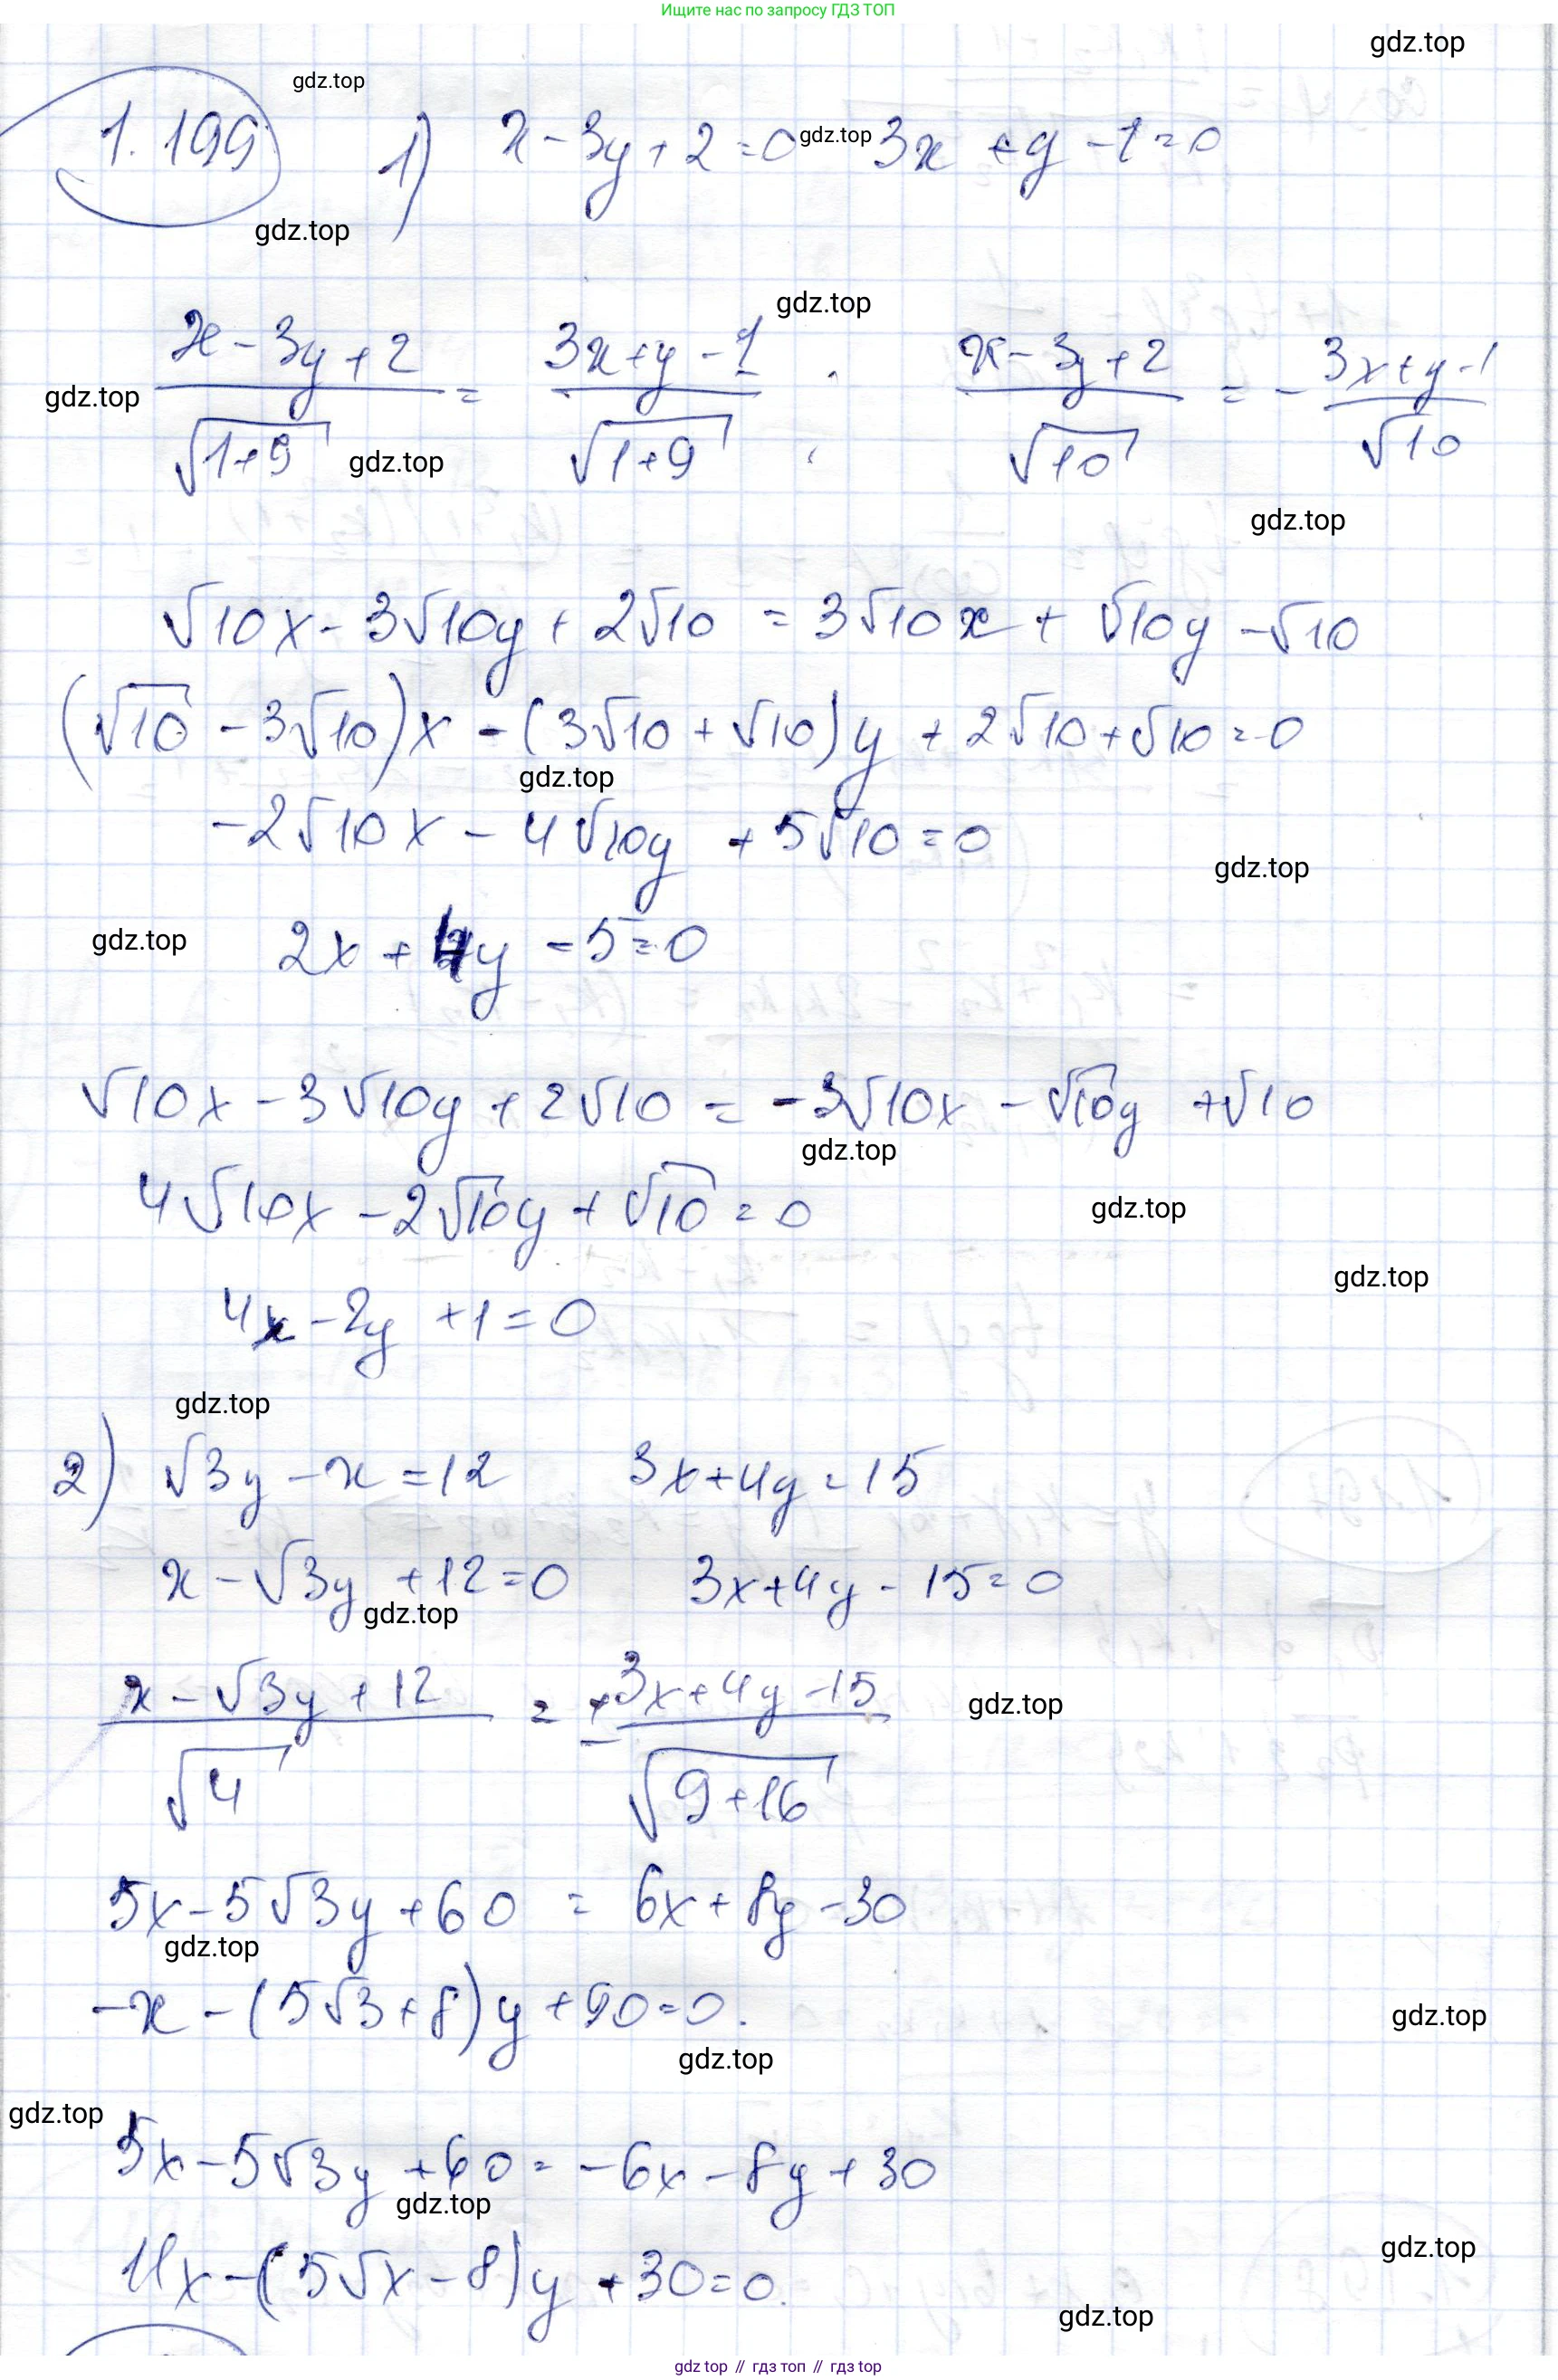 Ищите нас по запросу ГДЗ ТОП
gdz.top
gdz.top
1.199 1) x - 3y + 2 = 0 gdz.top 3x + y - 1 = 0
gdz.top
gdz.top
(x - 3y + 2)/√(1+9) = (3x + y - 1)/√(1+9) ; (x - 3y + 2)/√10 = -(3x + y - 1)/√10
gdz.top
gdz.top
gdz.top
√10x - 3√10y + 2√10 = 3√10x + √10y - √10
(√10 - 3√10)x - (3√10 + √10)y + 2√10 + √10 = 0
gdz.top
-2√10x - 4√10y + 5√10 = 0
gdz.top
gdz.top 2x + 4y - 5 = 0
√10x - 3√10y + 2√10 = -3√10x - √10y + √10
gdz.top
4√10x - 2√10y + √10 = 0
gdz.top
gdz.top
4x - 2y + 1 = 0
gdz.top
2) √3y - x = 12 3x + 4y = 15
x - √3y + 12 = 0 3x + 4y - 15 = 0
gdz.top
(x - √3y + 12)/√4 = ±(3x + 4y - 15)/√(9+16)
gdz.top
5x - 5√3y + 60 = 6x + 8y - 30
gdz.top
-x - (5√3 + 8)y + 90 = 0.
gdz.top
gdz.top
gdz.top
5x - 5√3y + 60 = -6x - 8y + 30
gdz.top
11x - (5√x - 8)y + 30 = 0.
gdz.top
gdz.top
gdz top // гдз топ // gdz top